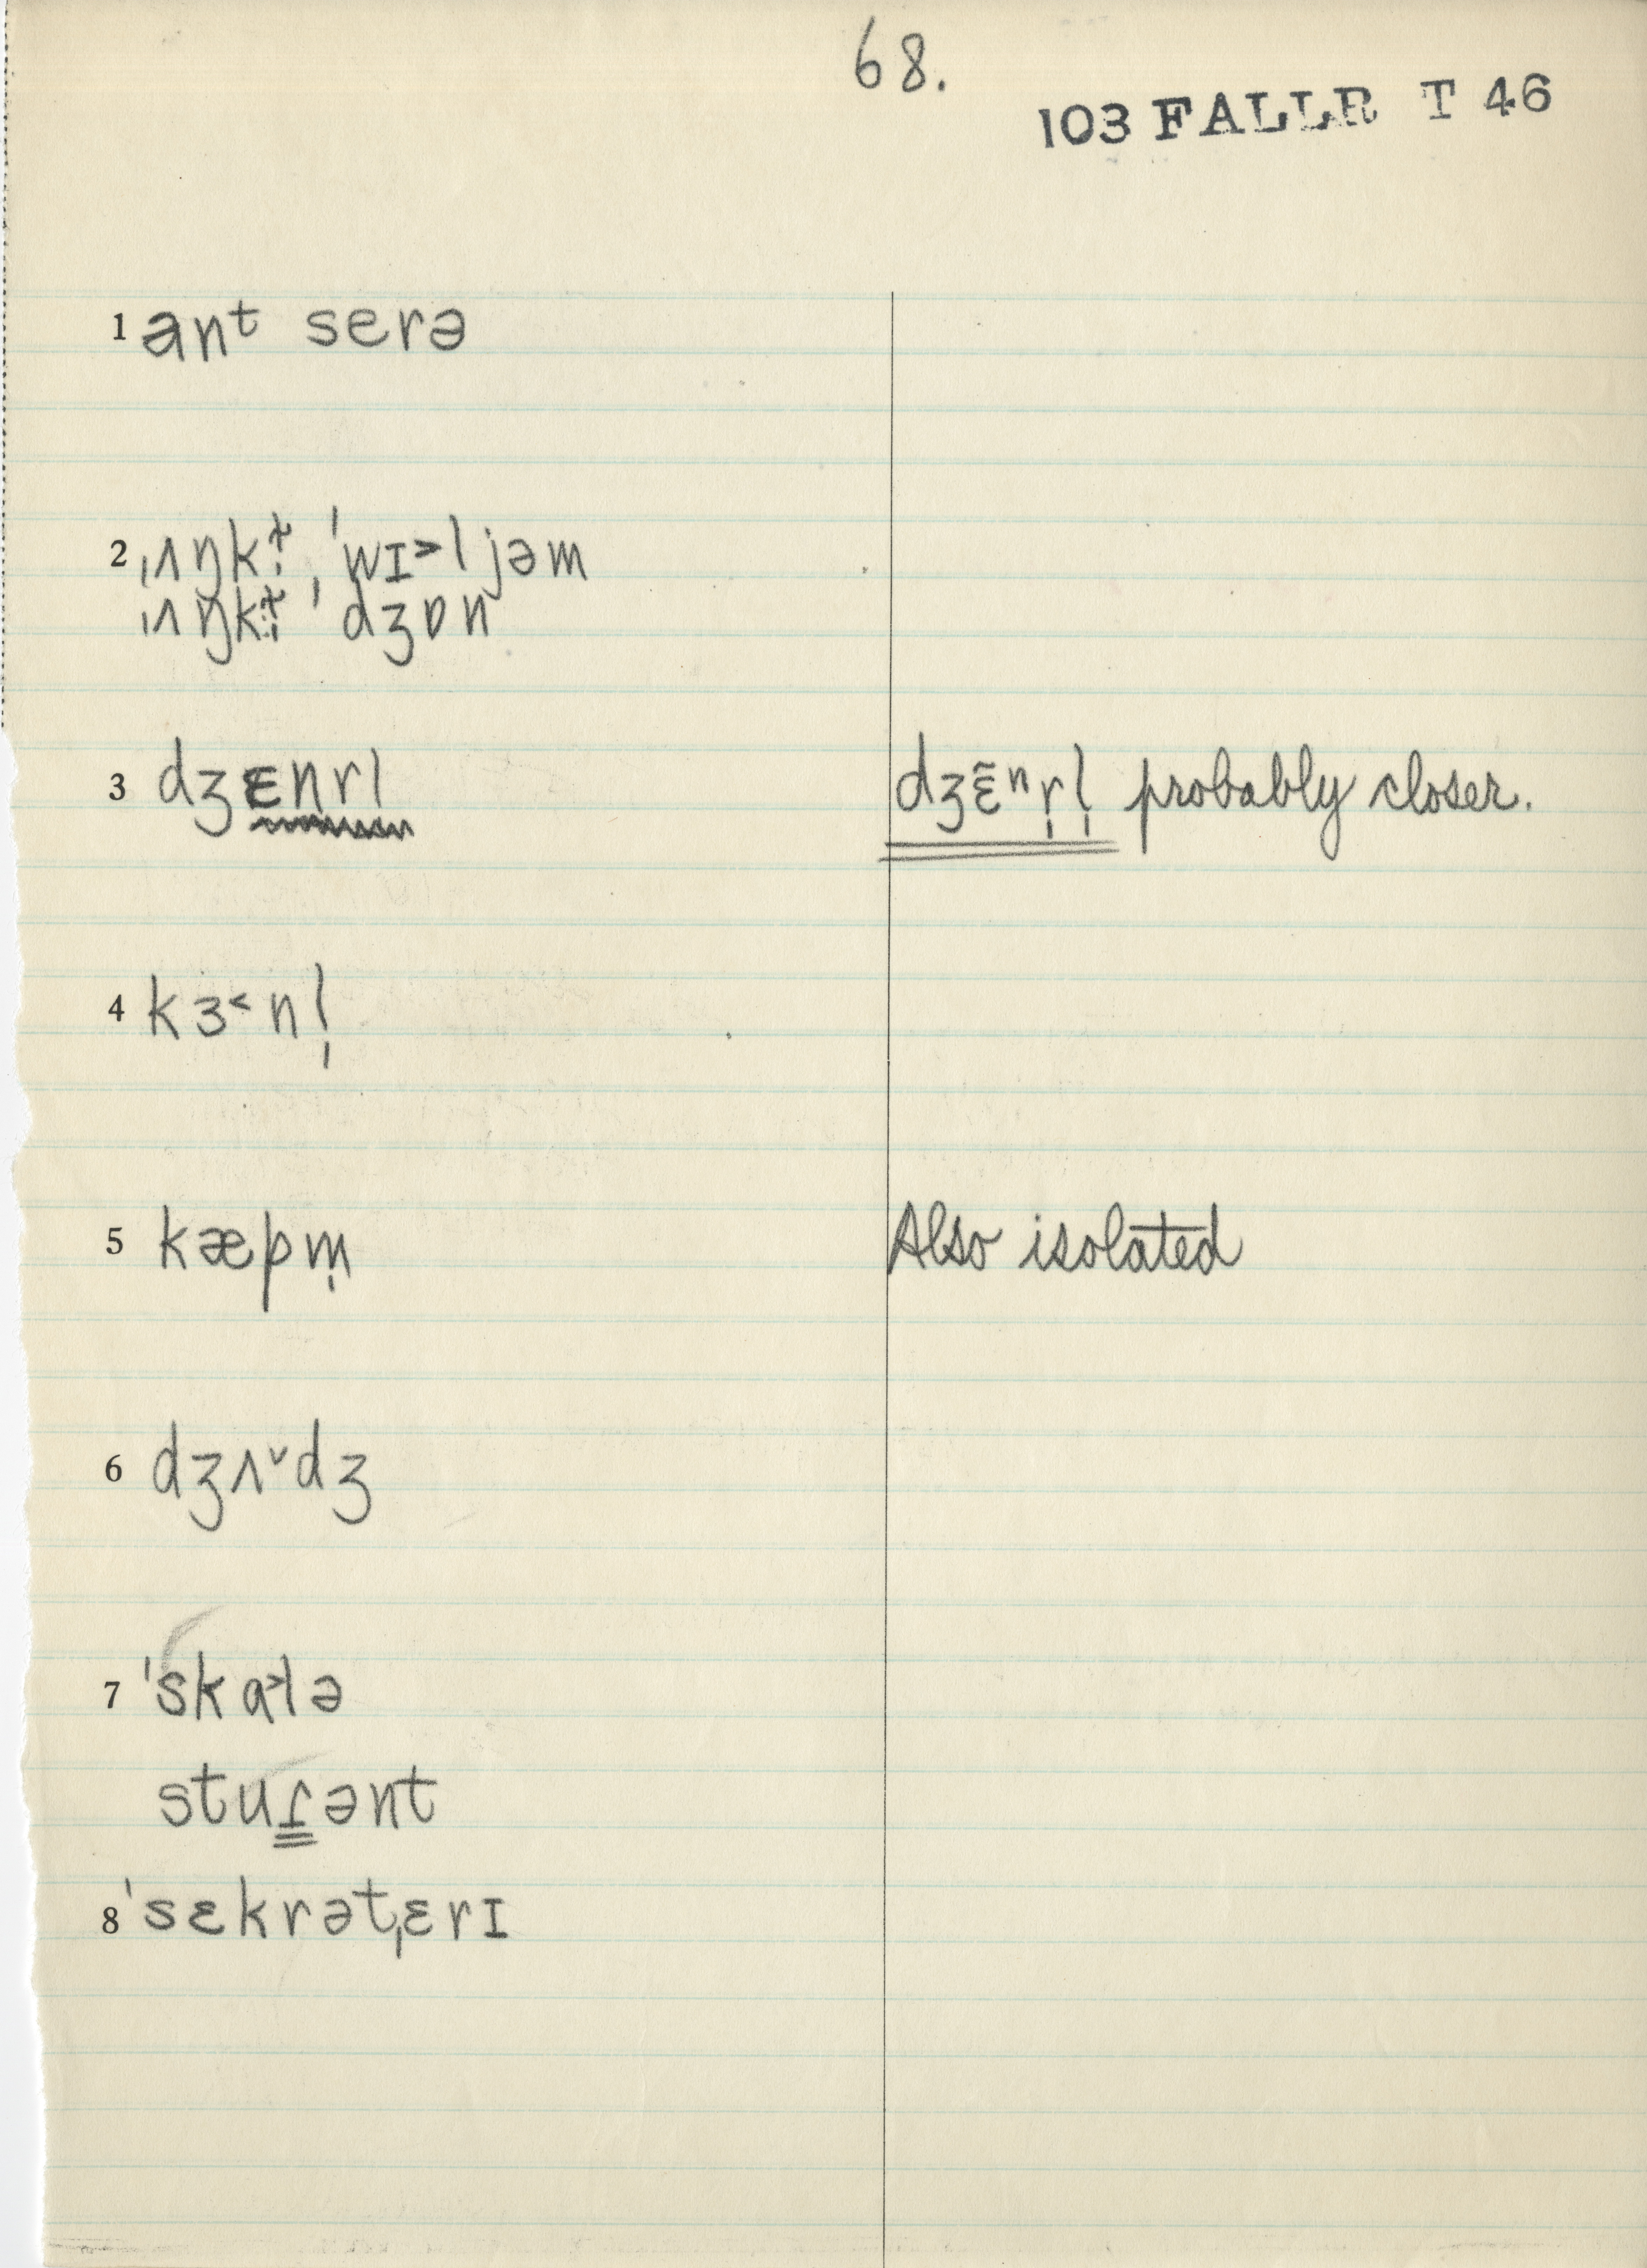 68.
103 FALLR T 46
1 anᵗ serə
2 ˌʌŋkɫ̩ ˈwɪ˃ljəm
ˌʌŋkɫ̩ ˈdʒɒn
3 dʒɛnrl dʒɛ̃ⁿr̩l̩ probably closer.
4 kɜ˂nl̩
5 kæpm̩ Also isolated
6 dʒʌ˅dʒ
7 ˈskɑ˃lə
stuɾənt
8 ˈsɛkrətˌɛrɪ